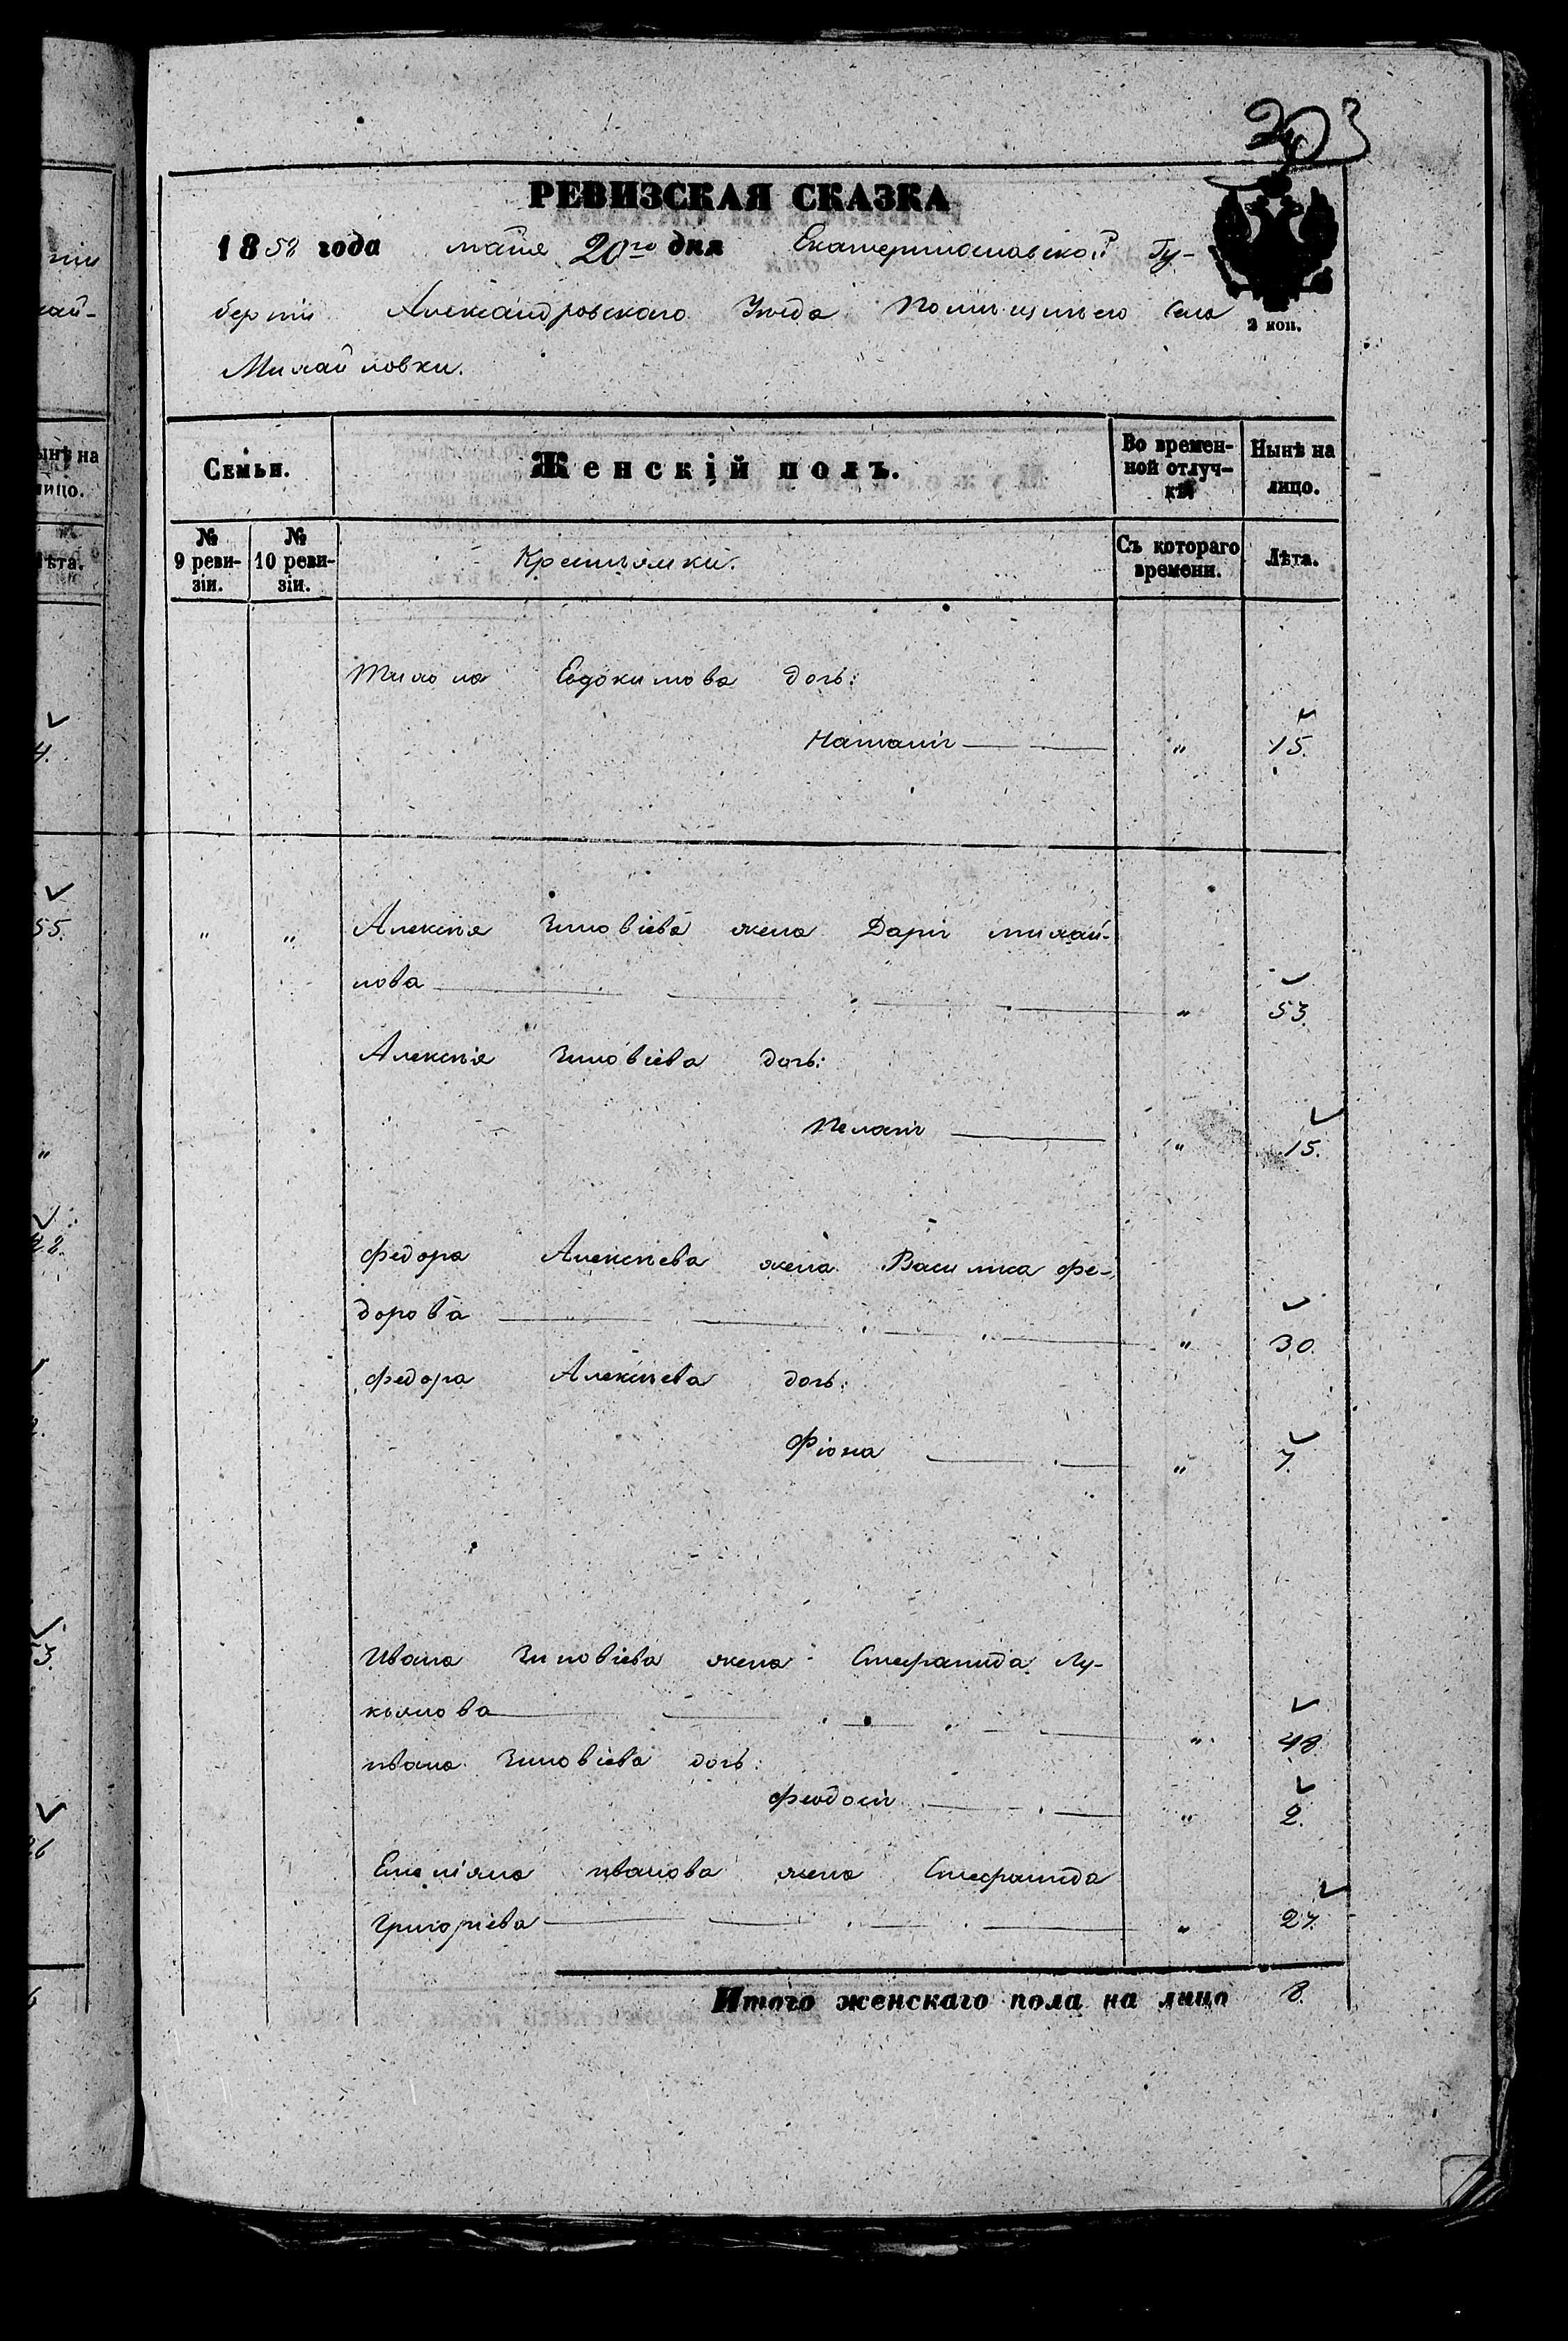 203
РЕВИЗСКАЯ СКАЗКА
1858 года маія 20го дня Екатеринославской Гу-
берніи Александровскаго Уѣзда Помѣщичьего Села
Михайловки.
2 коп.
Семьи.
Женскій полъ.
Во времен-
ной отлуч-
кѣ
Нынѣ на
лицо.
№
9 реви-
зіи.
№
10 реви-
зіи.
Крестьянки.
Съ котораго
времени.
Лѣта.
Евдокимова дочь:
Наталія " 15.
" " Алексѣя Зиновіева жена Дарія Михай-
лова " 53.
Алексѣя Зиновіева дочь:
Пелагія " 15.
Федора Алексѣева жена Василиса Фе-
дорова " 30.
Федора Алексѣева дочь:
Фіона " 7.
Ивана Зиновіева жена Стефанида Лу-
кьянова " 48
Ивана Зиновіева дочь:
Феодосія " 2.
Емеліяна Иванова жена Стефанида
Григорьева " 27.
Итого женскаго пола на лицо 8.